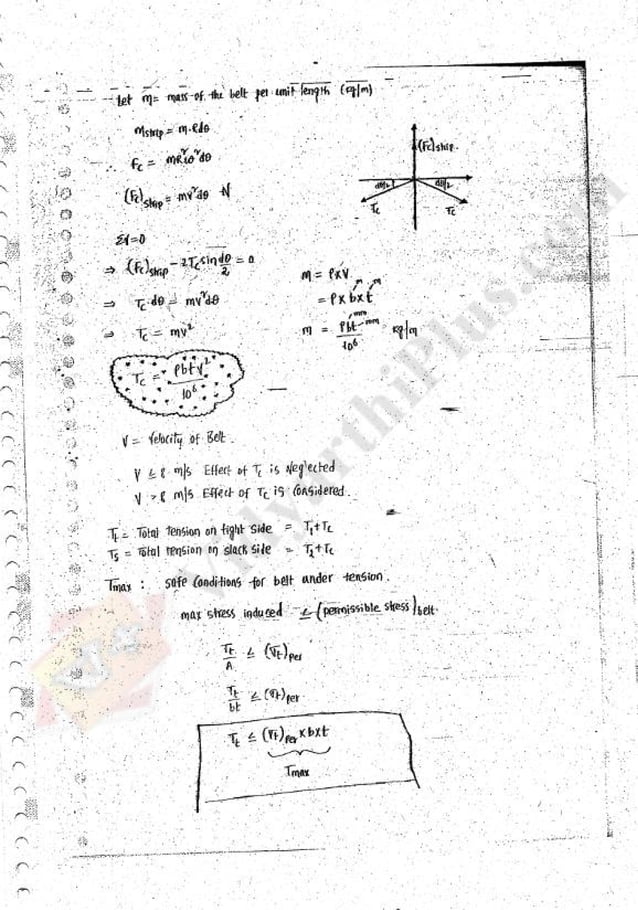 Let m = mass of the belt per unit length (kg/m)
m_strip = m·Rdθ
F_c = mR²ω²dθ
(F_c)_strip = mv²dθ N
(F_c)_strip
dθ/2
dθ/2
T_c
T_c
ΣV=0
⇒ (F_c)_strip - 2T_c sin dθ/2 = 0
⇒ T_c dθ = mv²dθ
⇒ T_c = mv²
m = ρ×V
= ρ × b × t
m m
m = ρbt/10⁶ kg/m
mm mm
T_c = ρbtv²/10⁶
V = Velocity of Belt.
V ≤ 8 m/s Effect of T_c is Neglected
V > 8 m/s Effect of T_c is Considered.
T_t = Total Tension on tight side = T₁+T_c
T_s = Total tension on slack side = T₂+T_c
T_max : safe Conditions for belt under tension.
max stress induced ≤ (permissible stress)_belt
T_t/A ≤ (σ_t)_per
T_t/bt ≤ (σ_t)_per
T_t ≤ (σ_t)_per × b × t
T_max
VidyarthiPlus.com
V+